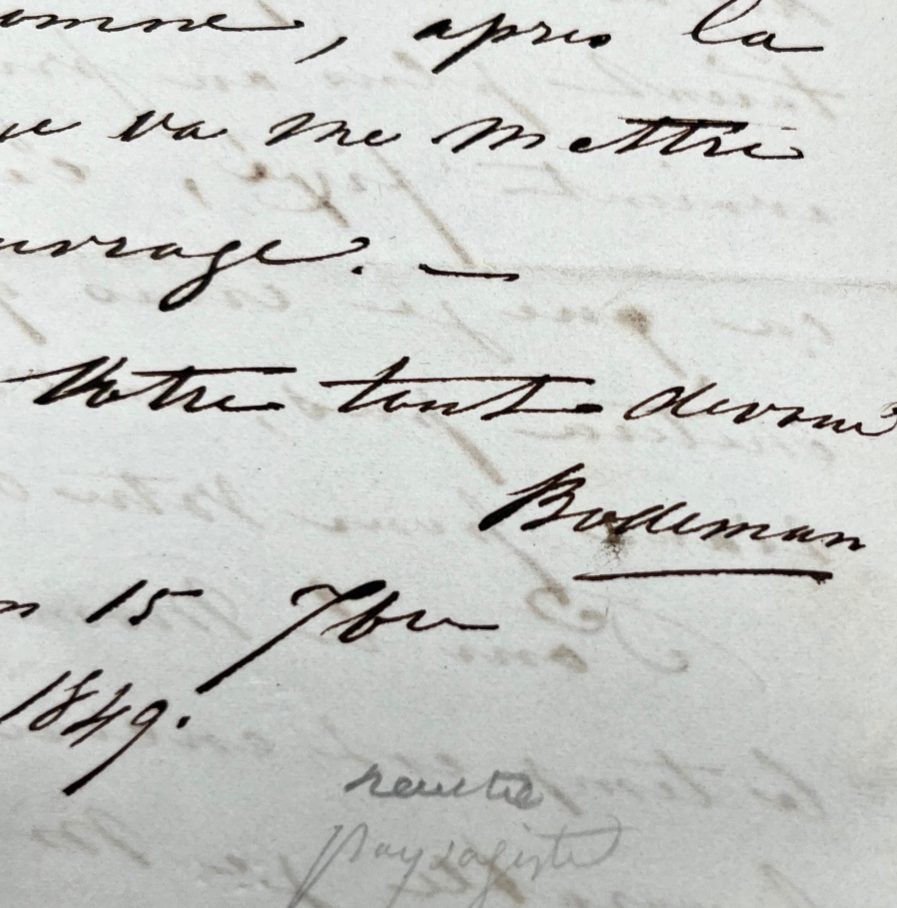 omne, après la
ue va me mettre
uvrage. —
Votre tout devoué
Bodeman
n 15 7bre
1849.
peintre
paysagiste